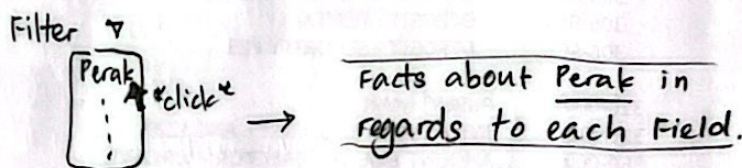 Filter
Perak
*click*
Facts about Perak in
regards to each Field.